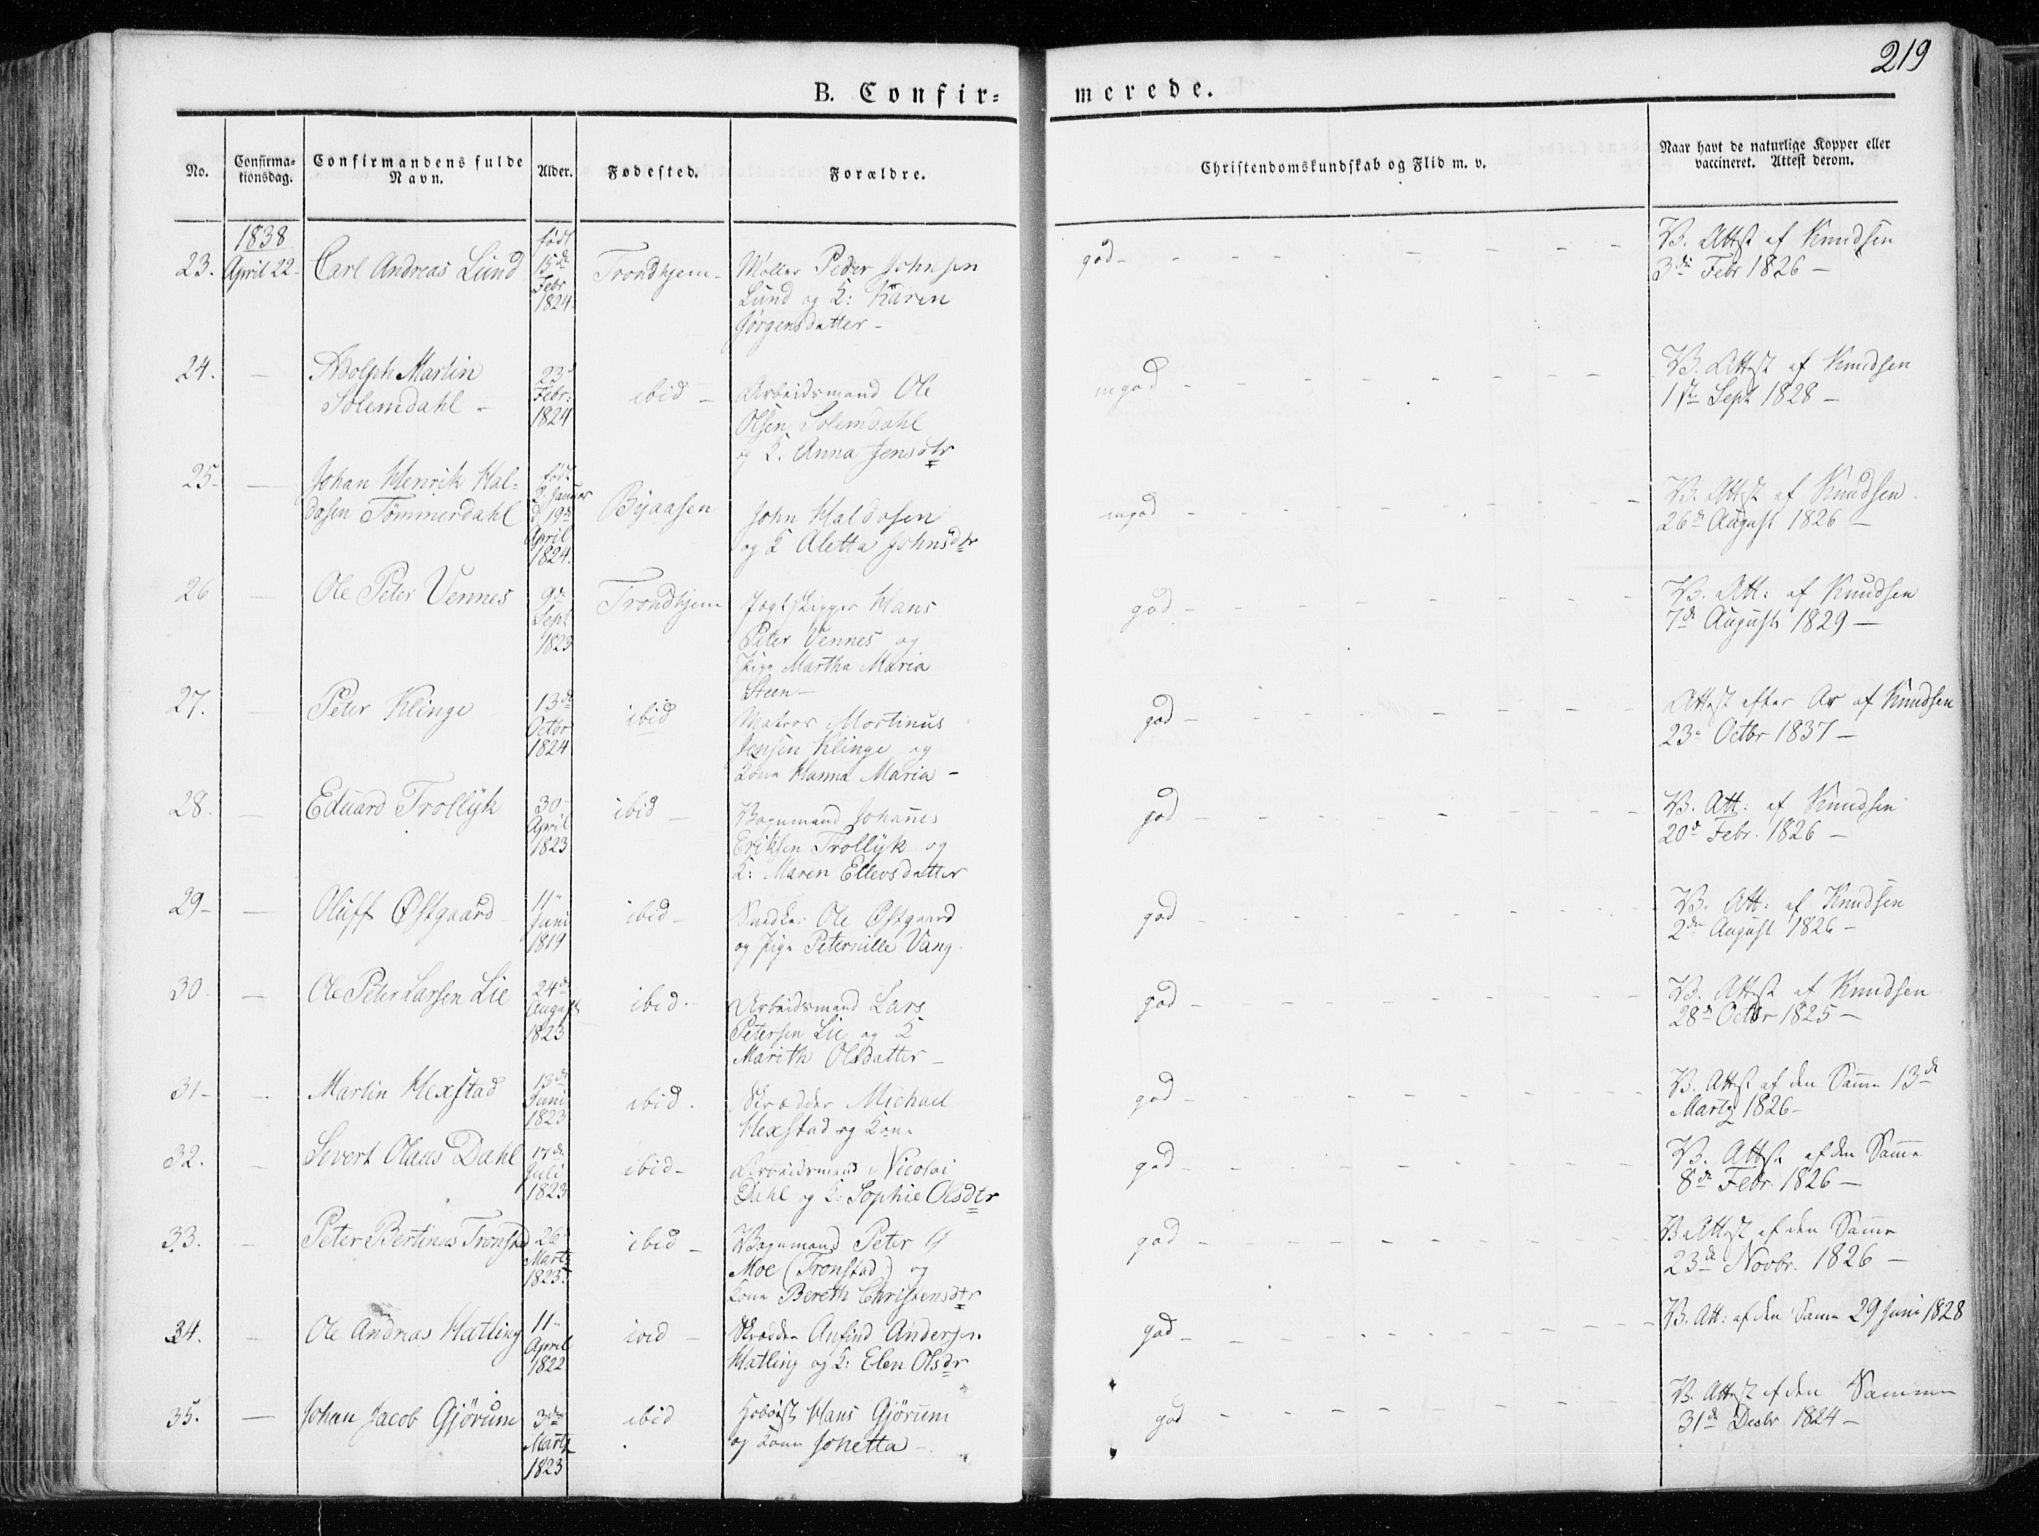 219
B. Confir=
merede.
No.
Confirma-
tionsdag.
Confirmandens fulde
Navn.
Alder.
Fødested.
Forældre.
Christendomskundskab og Flid m. v.
Naar havt de naturlige Kopper eller
vaccineret. Attest derom.
1838
23. April 22- Carl Andreas Lund
født
15de
Febr
1824
Trondhjem-
Møller Peder Johnsen
Lund og K: Karen
Jørgensdatter-
god-
V. Attest af Knudsen
3de Febr 1826-
24. - Adolph Martin
Solemdahl-
23d
Febr:
1824
ibid-
Arbeidsmand Ole
Olsen Solemdahl
og K. Anna Jensdtr
mgod-
V. Attest af Knudsen
1ste Sept 1828-
25- - Johan Henrik Hal-
dosen Tømmerdahl
født
2 Januar
d. 19de
April
1824.
Byaasen
John Haldosen
og K Aletta Johnsdtr
mgod-
V. Attest af Knudsen
26de August 1826-
26 - Ole Peter Vennes
9de
Sept
1823
Trondhjem
Jægtskipper Hans
Peter Vennes og
Pige Martha Maria
Steen-
god-
V. Att: af Knudsen
7de August 1829-
27. - Peter Klinge
13de
Octbr
1824
ibid
Matros Mortinus
Jensen Klinge og
Kone Hanna Maria-
god-
Attest efter Ar af Knudsen
23de Octbr 1837-
28. - Eduard Trollyk
30-
April
1823
ibid-
Vognmand Johannes
Eriksen Trollyk og
K: Maren Ellevsdatter
god-
V. Att: af Knudsen
20de Febr. 1826-
29- - Oluff Østgaard
11-
Juni
1819
ibid-
Ole Østgaard
og Pige Peternille Vang.
god-
V. Att: af Knudsen
2den August 1826-
30. - Ole Peter Larsen Lie
24de
August
1823
ibid.
Arbeidsmand Lars
Petersen Lie og K
Marith Olsdatter-
god-
V. Attest af Knudsen
28de Octbr 1825-
31- - Martin Hexstad
13de
Juni
1823
ibid.
Skrædder Michael
Hexstad og Kone
god-
V. Attst af den Samme 13de
Martz 1826-
32. - Sivert Olaus Dahl
17de
Juli
1823
ibid-
Arbeidsmand Nicolai
Dahl og K: Sophie Olsdtr
god-
V. Attest af den Samme
8de Febr. 1826-
33. - Peter Bertinus Tronstad
26-
Martz
1823.
ibid-
Vognmand Peter
Moe (Tronstad) og
Kone Bereth Christensdtr
god-
V Attest af den Samme
23de Novbr. 1826-
34. - Ole Andreas Hatling
11-
April
1822
ibid-
Skrædder Anfind Andersen
Hatling og K: Elen Olsdr
god-
V. Att: af den Samme 29 Juni 1828
35. - Johan Jacob Gjørum
3die
Martz
1823
ibid
Hoboist Hans Gjørum
og Kone Johetta-
god-
V. Attest af den Samme
31de Decbr 1824-